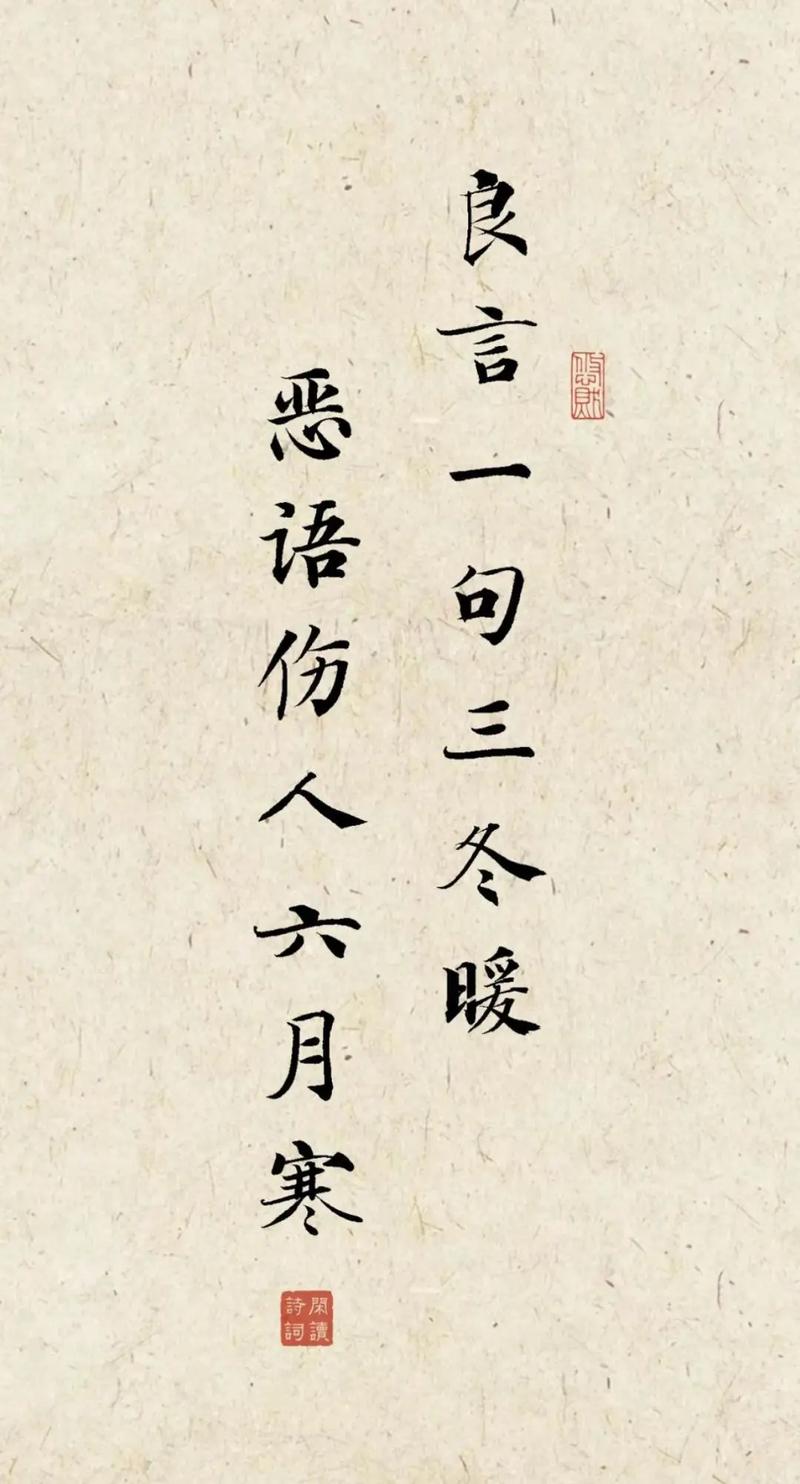 良言一句三冬暖
恶语伤人六月寒
閑讀詩詞